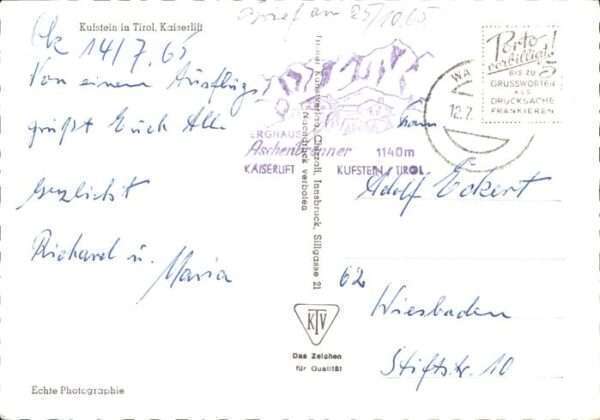 Brief am 25/10.65
Kufstein in Tirol, Kaiserlift
14/7.65
Von einem Ausflug
grüßt Euch Alle
herzlichst
Richard u.
Maria
Echte Photographie
BERGHAUS
Aschenbrenner 1140m
KAISERLIFT KUFSTEIN / TIROL
Tiroler Kunstverlag Chizzali, Innsbruck, Sillgasse 21
Nachdruck verboten
KTV
Das Zeichen
für Qualität
WA
12.7
Porto
verbilligt!
BIS ZU 5
GRUSSWORTEN
ALS
DRUCKSACHE
FRANKIEREN
Adolf Eckert
62
Wiesbaden
Stiftstr. 10